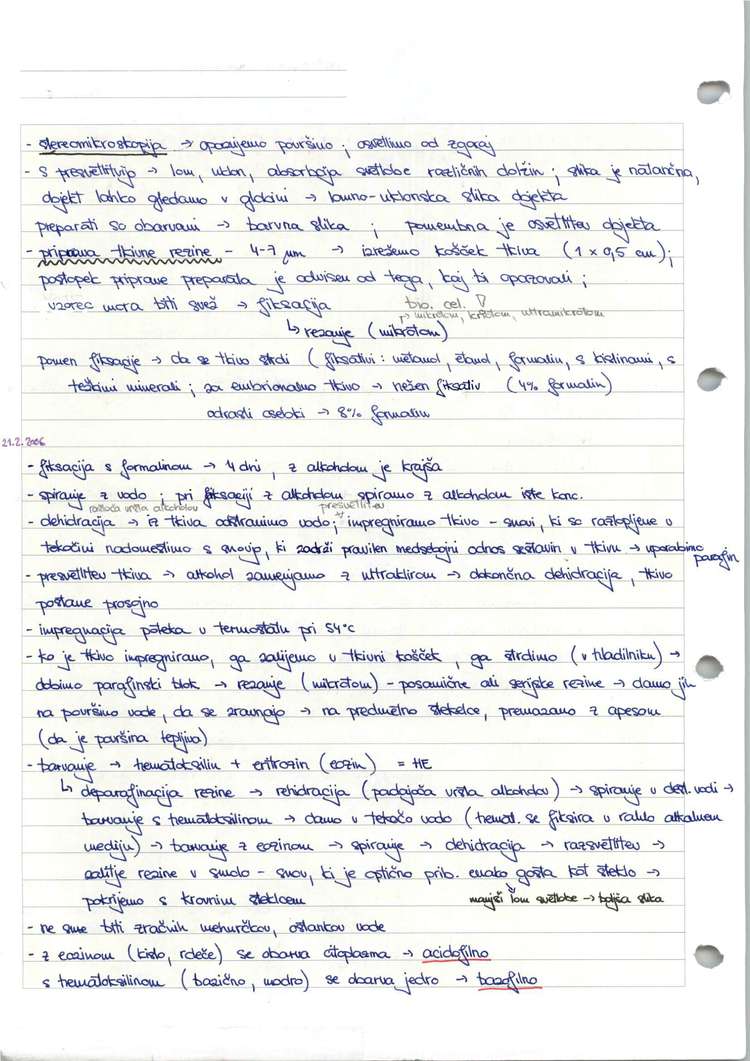 - stereomikroskopija → opazujemo površino ; osvetlimo od zgoraj
- s presvetlitvijo → lom, uklon, absorbcija svetlobe različnih dolžin ; slika je natančna,
objekt lahko gledamo v globini → lomno-uklonska slika objekta
preparati so obarvani → barvna slika ; pomembna je osvetlitev objekta
- priprava tkivne rezine - 4-7 μm → izrežemo košček tkiva (1 x 0,5 cm);
postopek priprave preparata je odvisen od tega, kaj bi opazovali ;
vzorec mora biti svež → fiksacija
bio. cel. ▽
→ mikrotom, kriotom, ultramikrotom
↳ rezanje (mikrotom)
pomen fiksacije → da se tkivo strdi (fiksativi : metanol, etanol, formalin, s kislinami, s
težkimi minerali ; za embrionalno tkivo → nežen fiksativ (4% formalin)
odrasli osebki → 8% formalin
21.2.2006
- fiksacija s formalinom → 4 dni, z alkoholom je krajša
- spiranje z vodo ; pri fiksaciji z alkoholom spiramo z alkoholom iste konc.
rastoča vrsta alkoholov
presvetlitev
- dehidracija → iz tkiva odstranimo vodo; impregniramo tkivo - snovi, ki so raztopljene v
tekočini nadomestimo s snovjo, ki zadrži pravilen medsebojni odnos sestavin v tkivu → uporabimo
parafin
- presvetlitev tkiva → alkohol zamenjamo z ultraklirom → dokončna dehidracija, tkivo
postane prosojno
- impregnacija poteka v termostatu pri 54°C
- ko je tkivo impregnirano, ga zalijemo v tkivni košček, ga strdimo (v hladilniku) →
dobimo parafinski blok → rezanje (mikrotom) - posamične ali serijske rezine → damo jih
na površino vode, da se zravnajo → na predmetno stekelce, premazano z apesom
(da je površina lepljiva)
- barvanje → hematoksilin + eritrozin (eozin) = HE
↳ deparafinacija rezine → rehidracija (padajoča vrsta alkoholov) → spiranje v dest. vodi →
barvanje s hematoksilinom → damo v tekočo vodo (hemat. se fiksira v rahlo alkalnem
mediju) → barvanje z eozinom → spiranje → dehidracija → razsvetlitev →
zalitje rezine v smolo - snov, ki je optično prib. enako gosta kot steklo →
pokrijemo s krovnim steklcem
manjši lom svetlobe → boljša slika
- ne sme biti zračnih mehurčkov, ostankov vode
- z eozinom (kislo, rdeče) se obarva citoplazma → acidofilno
s hematoksilinom (bazično, modro) se obarva jedro → bazofilno